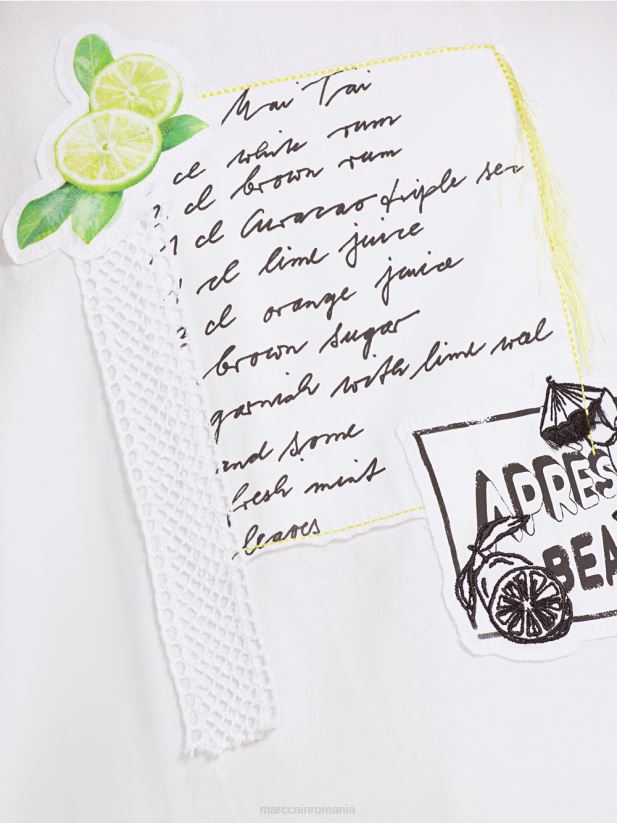 Mai Tai
cl white rum
cl brown rum
1 cl Curacao triple sec
cl lime juice
cl orange juice
brown sugar
garnish with lime
and some
fresh mint
leaves
APRES
BEA
marccainromania